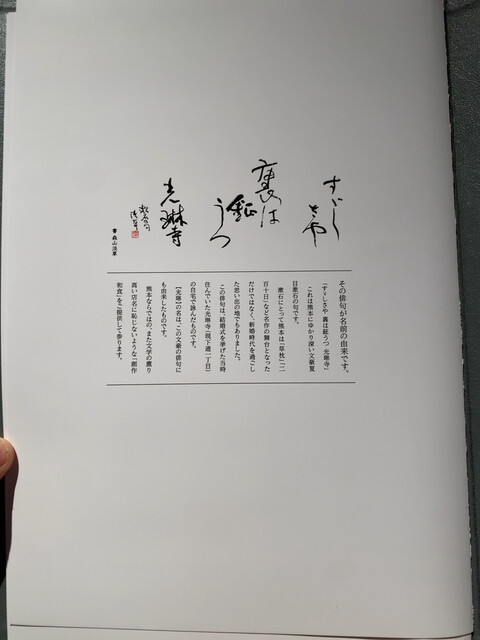 すゞしさや
裏は
鉦うつ
光琳寺
漱石句
書 森山淡草
その俳句が名前の由来です。
「すゞしさや 裏は鉦うつ 光琳寺」
これは熊本にゆかり深い文豪夏
目漱石の句です。
漱石にとって熊本は『草枕』『二
百十日』など名作の舞台となった
だけではなく、新婚時代を過ごし
た思い出の地でもありました。
この俳句は、結婚式を挙げた当時
住んでいた光琳寺(現下通一丁目)
の自宅で詠んだものです。
【光琳】の名は、この文豪の俳句に
も由来したものです。
熊本ならではの、また文学の薫り
高い店名に恥じないような「創作
和食」をご提供して参ります。